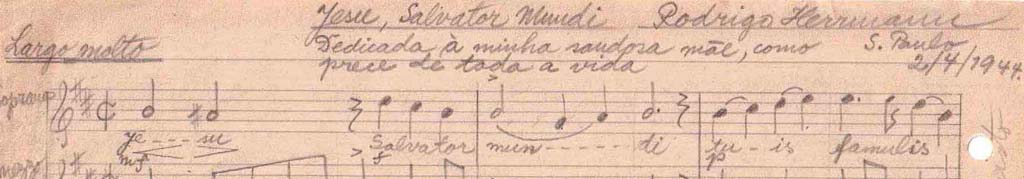 Jesu, Salvator Mundi Rodrigo Herrmann
Largo molto
Dedicada à minha saudosa mãe, como
prece de toda a vida
S. Paulo
2/4/1944.
soprano
Je---su Salvator mun-----di tu-is famulis
mf f p
mezzo